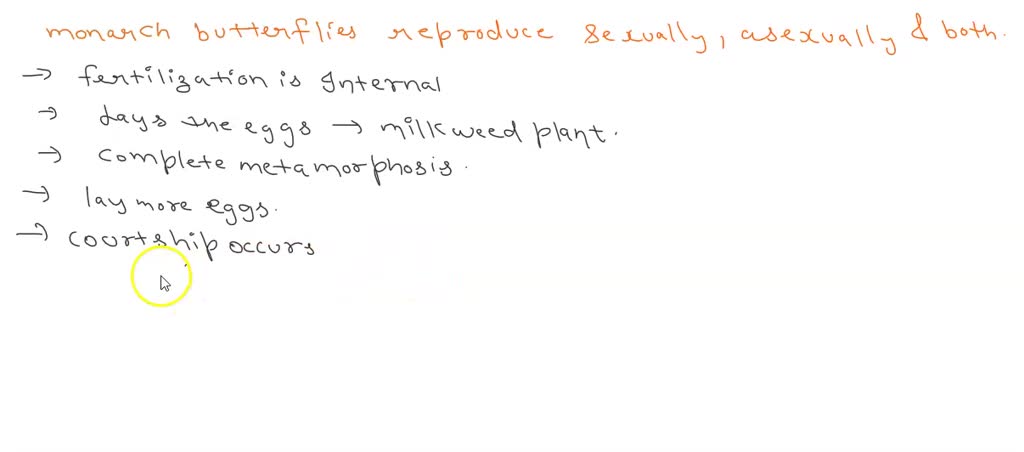 monarch butterflies reproduce sexually, asexually & both.
→ fertilization is Internal
→ Lays the eggs → milkweed plant.
→ Complete metamorphosis.
→ lay more eggs.
→ courtship occurs